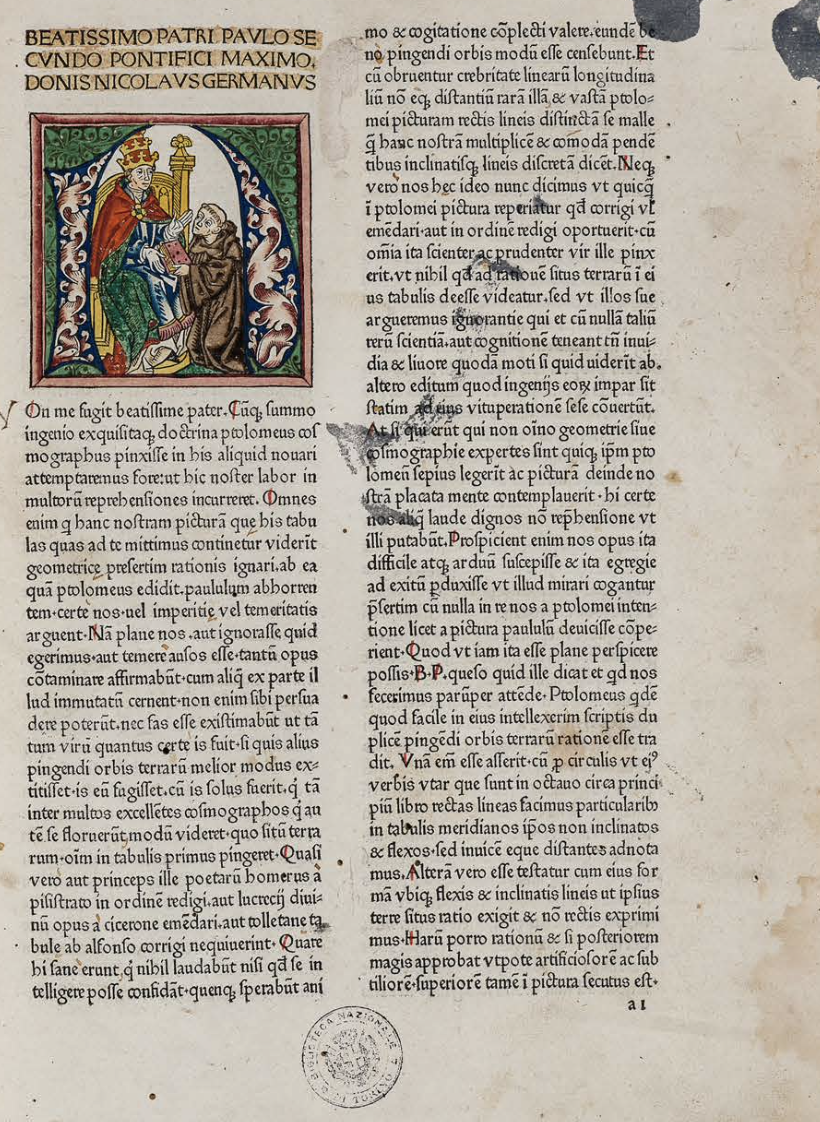 BEATISSIMO PATRI PAVLO SE
CVNDO PONTIFICI MAXIMO.
DONIS NICOLAVS GERMANVS
On me fugit beatissime pater. Cūqꝫ summo
ingenio exquisitaqꝫ doctrina ptolomeus cos
mographus pinxisse in his aliquid nouari
attemptaremus fore: ut hic noster labor in
multorū reprehensiones incurreret. Omnes
enim q hanc nostram picturā que his tabu
las quas ad te mittimus continetur viderīt
geometrice presertim rationis ignari. ab ea
quā ptolomeus edidit. paululum abhorren
tem. certe nos. uel imperitie vel temeritatis
arguent. Nā plane nos. aut ignorasse quid
egerimus. aut temere ausos esse. tantū opus
cōtaminare affirmabūt. cum aliq̄ ex parte il
lud immutatū cernent. non enim sibi persua
dere poterūt. nec fas esse existimabūt ut tā
tum virū quantus certe is fuit. si quis alius
pingendi orbis terrarū melior modus ex-
titisset. is eū fugisset. cū is solus fuerit. q̇ tā
inter multos excellētes cosmographos q̇ au
tē se floruerūt modū videret. quo sitū terra
rum. oīm in tabulis primus pingeret. Quasi
vero aut princeps ille poetarū homerus a
pisistrato in ordinē redigi. aut lucrecij diui-
nū opus a cicerone emēdari. aut tolletane ta
bule ab alfonso corrigi nequiuerint. Quare
hi sane erunt. q̇ nihil laudabūt nisi qđ se in
telligere posse confidāt. quenqꝫ sperabūt ani
mo & cogitatione cōplecti valere. eundē be
no pingendi orbis modū esse censebunt. Et
cū obruentur crebritate linearū longitudina
liū nō eqꝫ distantiū rarā illā & vastā ptolo-
mei picturam rectis lineis distīctā se malle
q̄ hanc nostrā multiplicē & comodā pendē
tibus inclinatisqꝫ lineis discretā dicēt. Neqꝫ
vero nos hec ideo nunc dicimus vt quicq̄
ī ptolomei pictura reperiatur qđ corrigi vl
emēdari. aut in ordinē redigi oportuerit. cū
omīa ita scienter ac prudenter vir ille pinx
erit. vt nihil qđ ad rationē situs terrarū ī ei
us tabulis deesse videatur. sed vt illos sue
argueremus ignorantie qui et cū nullā taliū
rerū scientiā. aut cognitionē teneant tn̄ inui-
dia & liuore quodā moti si quid uiderīt ab.
altero editum quod ingenijs eoꝝ impar sit
statim ad eius vituperationē sese cōuertūt.
At si qui erūt qui non oīno geometrie siue
cosmographie expertes sint quiqꝫ ipm̄ pto
lomeū sepius legerīt ac picturā deinde no
strā placata mente contemplauerit. hi certe
nos aliq̄ laude dignos nō rep̄hensione vt
illi putabūt. Prospicient enim nos opus ita
difficile atqꝫ arduū suscepisse & ita egregie
ad exitū ꝑduxisse vt illud mirari cogantur
p̄sertim cū nulla in re nos a ptolomei inten-
tione licet a pictura paululū deuicisse cōpe-
rient. Quod vt iam ita esse plane perspicere
possis. B. P. queso quid ille dicat et qđ nos
fecerimus parūper attēde. Ptolomeus qđē
quod facile in eius intellexerim scriptis du
plicē pingēdi orbis terrarū rationē esse tra
dit. Vnā em̄ esse asserit. cū ꝓ circulis vt ejꝰ
verbis vtar que sunt in octauo circa princi
piū libro rectas lineas facimus particularibꝫ
in tabulis meridianos ipos non inclinatos
& flexos. sed inuicē eque distantes adnota
mus. Alterā vero esse testatur cum eius for
mā vbiqꝫ flexis & inclinatis lineis ut ipsius
terre situs ratio exigit & nō rectis exprimi
mus. Harū porro rationū & si posteriorem
magis approbat vtpote artificiosorē ac sub
tiliorē. superiorē tamē ī pictura secutus est.
a 1
BIBLIOTECA NAZIONALE
TORINO